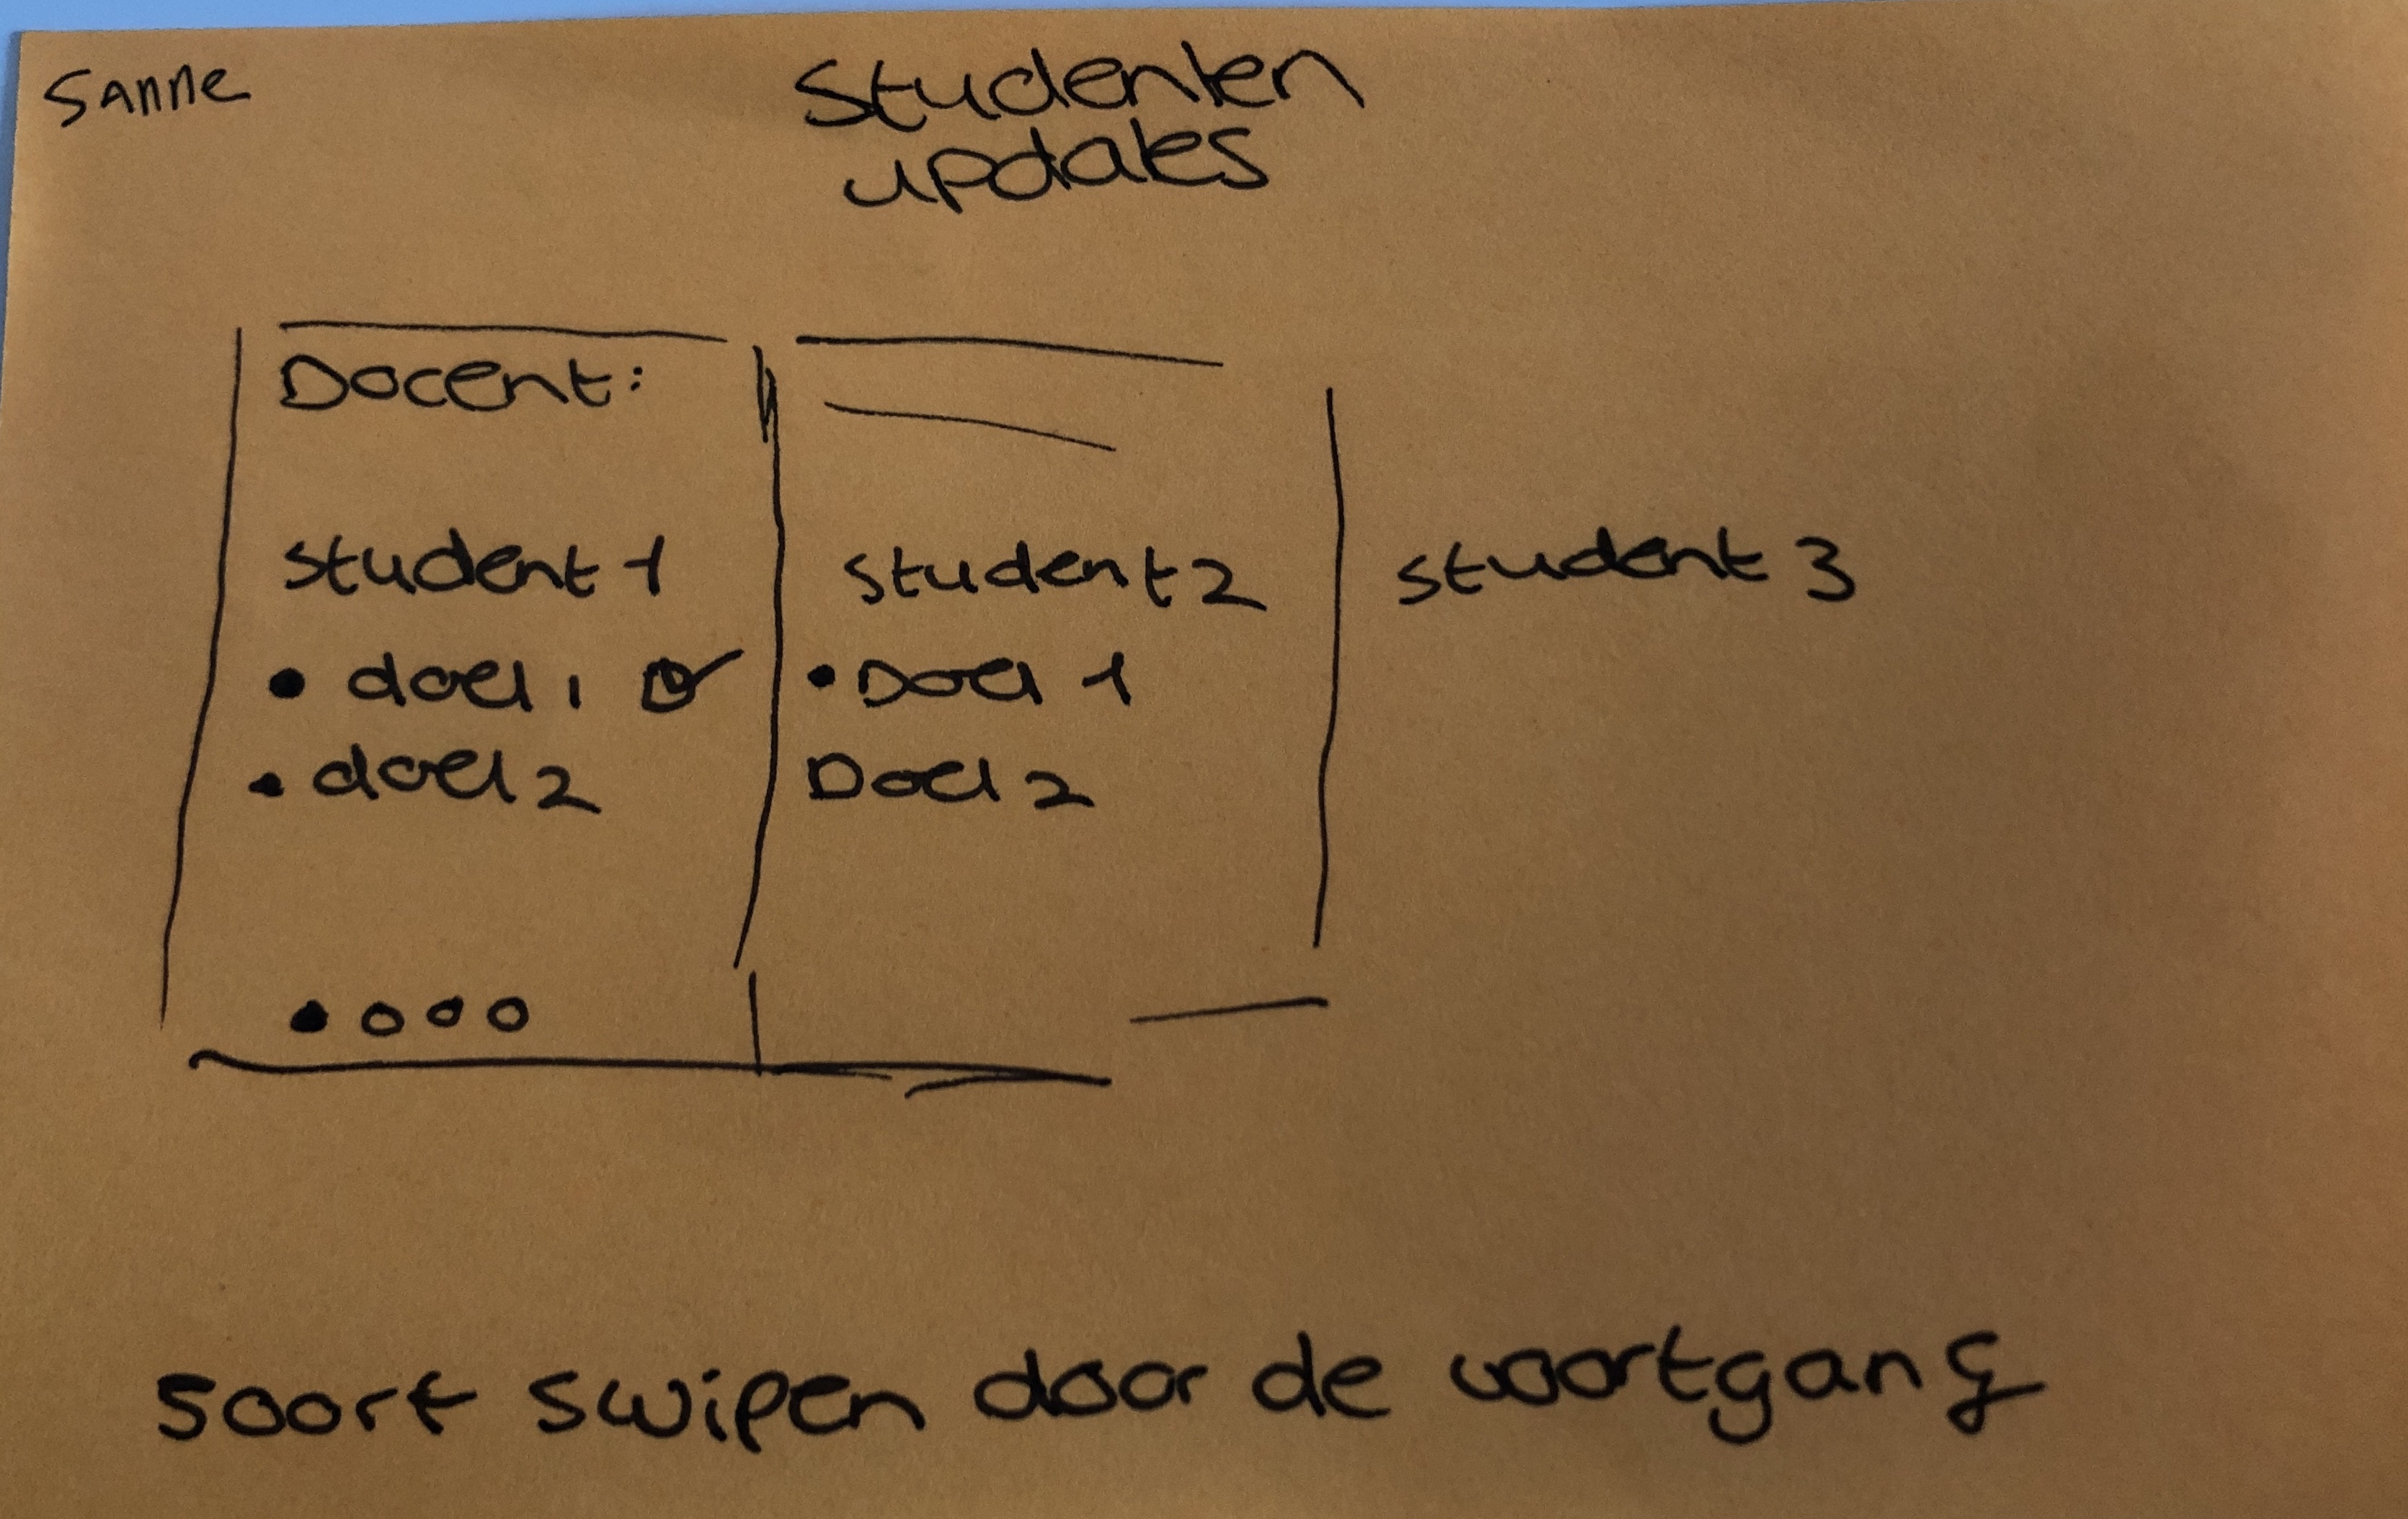 Sanne
Studenten
updates
Docent:
student 1
• doel 1
• doel 2
student 2
• Doel 1
Doel 2
student 3
soort swipen door de voortgang